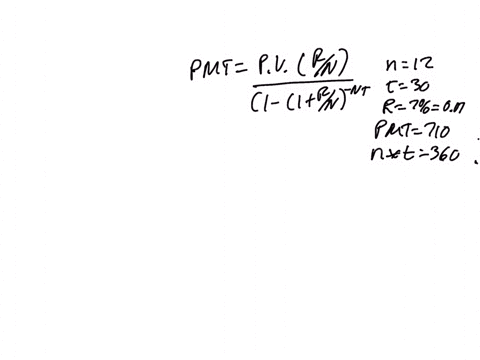 PMT = P.V. (R/N)
(1-(1+R/N)^-NT
n=12
t=30
R=7%=0.07
PMT=710
n*t=360